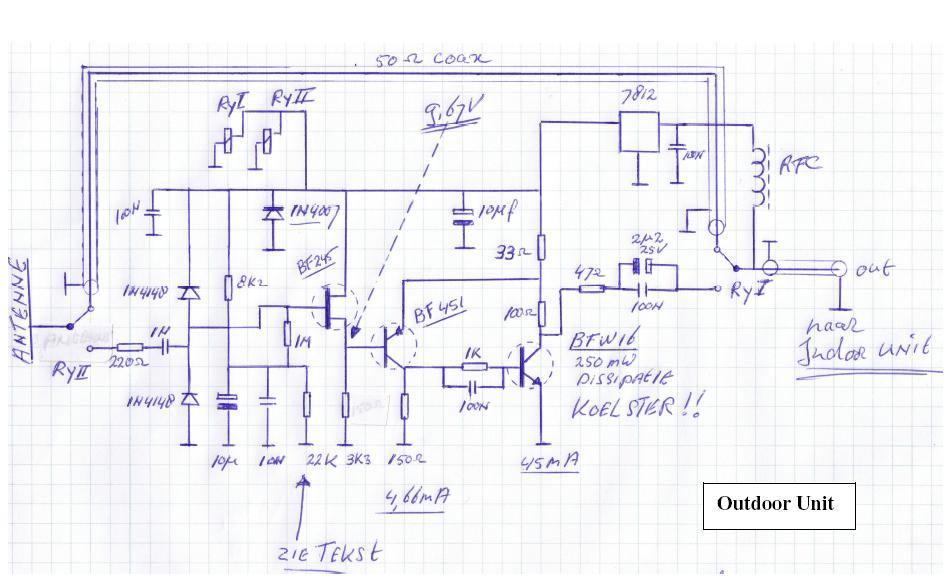 50Ω COAX
RyI RyII
9,67V
7812
100N
RFC
100N
1N4007
10µf
BF245
33Ω
2µ2
25V
47Ω
out
1N4148
8K2
BF451
100Ω
100N
RyI
ANTENNE
1N
220Ω
RyII
1M
1K
100N
BFW16
250 mW
DISSIPATIE
KOELSTER!!
naar
Indoor UNIT
1N4148
150Ω
10µ
10N
22K
3K3
150Ω
45mA
4,66mA
ZIE TEKST
Outdoor Unit